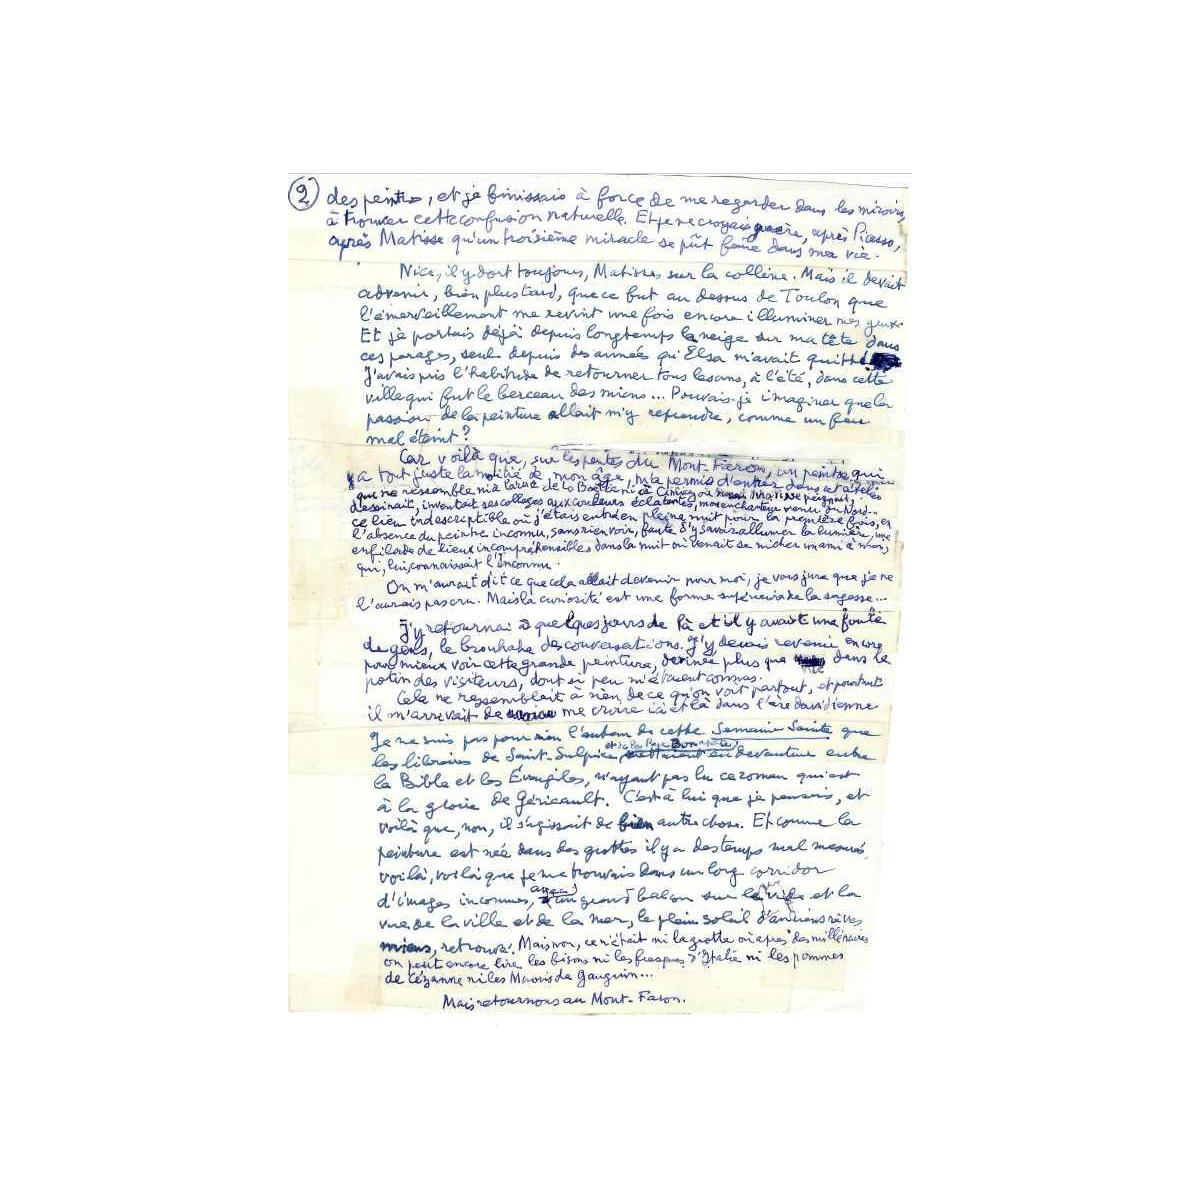 2 des peintres, et je finissais à force de me regarder dans les miroirs,
à trouver cette confusion naturelle. Et je ne croyais guère, après Picasso,
après Matisse qu'un troisième miracle se pût faire dans ma vie.
Nice, il y dort toujours, Matisse, sur la colline. Mais il devait
advenir, bien plus tard, que ce fut au dessus de Toulon que
l'émerveillement me revint une fois encore illuminer mes yeux.
Et je portais déjà depuis longtemps la neige sur ma tête dans
ces parages, seul depuis des années qu'Elsa m'avait quitté
J'avais pris l'habitude de retourner tous les ans, à l'été, dans cette
ville qui fut le berceau des miens... Pouvais-je imaginer que la
passion de la peinture allait m'y reprendre, comme un feu
mal éteint?
Car voilà que, sur les pentes du Mont-Faron, un peintre qui
a tout juste la moitié de mon âge, m'a permis d'entrer dans cet atelier
qui ne ressemble ni à la rue de La Boétie ni à Cimiez où Matisse peignait,
dessinait, inventait ses collages aux couleurs éclatantes, mon enchanteur venu du Nord...
ce lieu indescriptible où j'étais entré en pleine nuit pour la première fois, en
l'absence du peintre inconnu, sans rien voir, faute d'y savoir allumer la lumière, une
enfilade de lieux incompréhensibles dans la nuit où venait se nicher un ami à moi,
qui, lui, connaissait l'Inconnu.
On m'aurait dit ce que cela allait devenir pour moi, je vous jure que je ne
l'aurais pas cru. Mais la curiosité est une forme supérieure de la sagesse...
J'y retournai à quelques jours de là et il y avait une foule
de gens, le brouhaha des conversations. J'y devais revenir encore
pour mieux voir cette grande peinture, devinée plus que dans le
potin des visiteurs, dont si peu m'étaient connus.
Cela ne ressemblait à rien de ce qu'on voit partout, et pourtant
il m'arrivait de me croire ici et là dans l'ère davidienne
Je ne suis pas pour rien l'auteur de cette Semaine Sainte que
les libraires de Saint-Sulpice, et de la Rue Bonaparte mettaient en devanture entre
la Bible et les Évangiles, n'ayant pas lu ce roman qui est
à la gloire de Géricault. C'est à lui que je pensais, et
voilà que, non, il s'agissait de bien autre chose. Et comme la
peinture est née dans des grottes il y a des temps mal mesurés
voilà, voilà que je me trouvais dans un long corridor
d'images inconnues, avec un grand balcon sur le vide et la
vue de la ville et de la mer, le plein soleil d'anciens rêves
miens, retrouvé. Mais non, ce n'était ni la grotte où après des millénaires
on peut encore lire les bisons ni les fresques d'Italie ni les pommes
de Cézanne ni les Maoris de Gauguin...
Mais retournons au Mont-Faron.